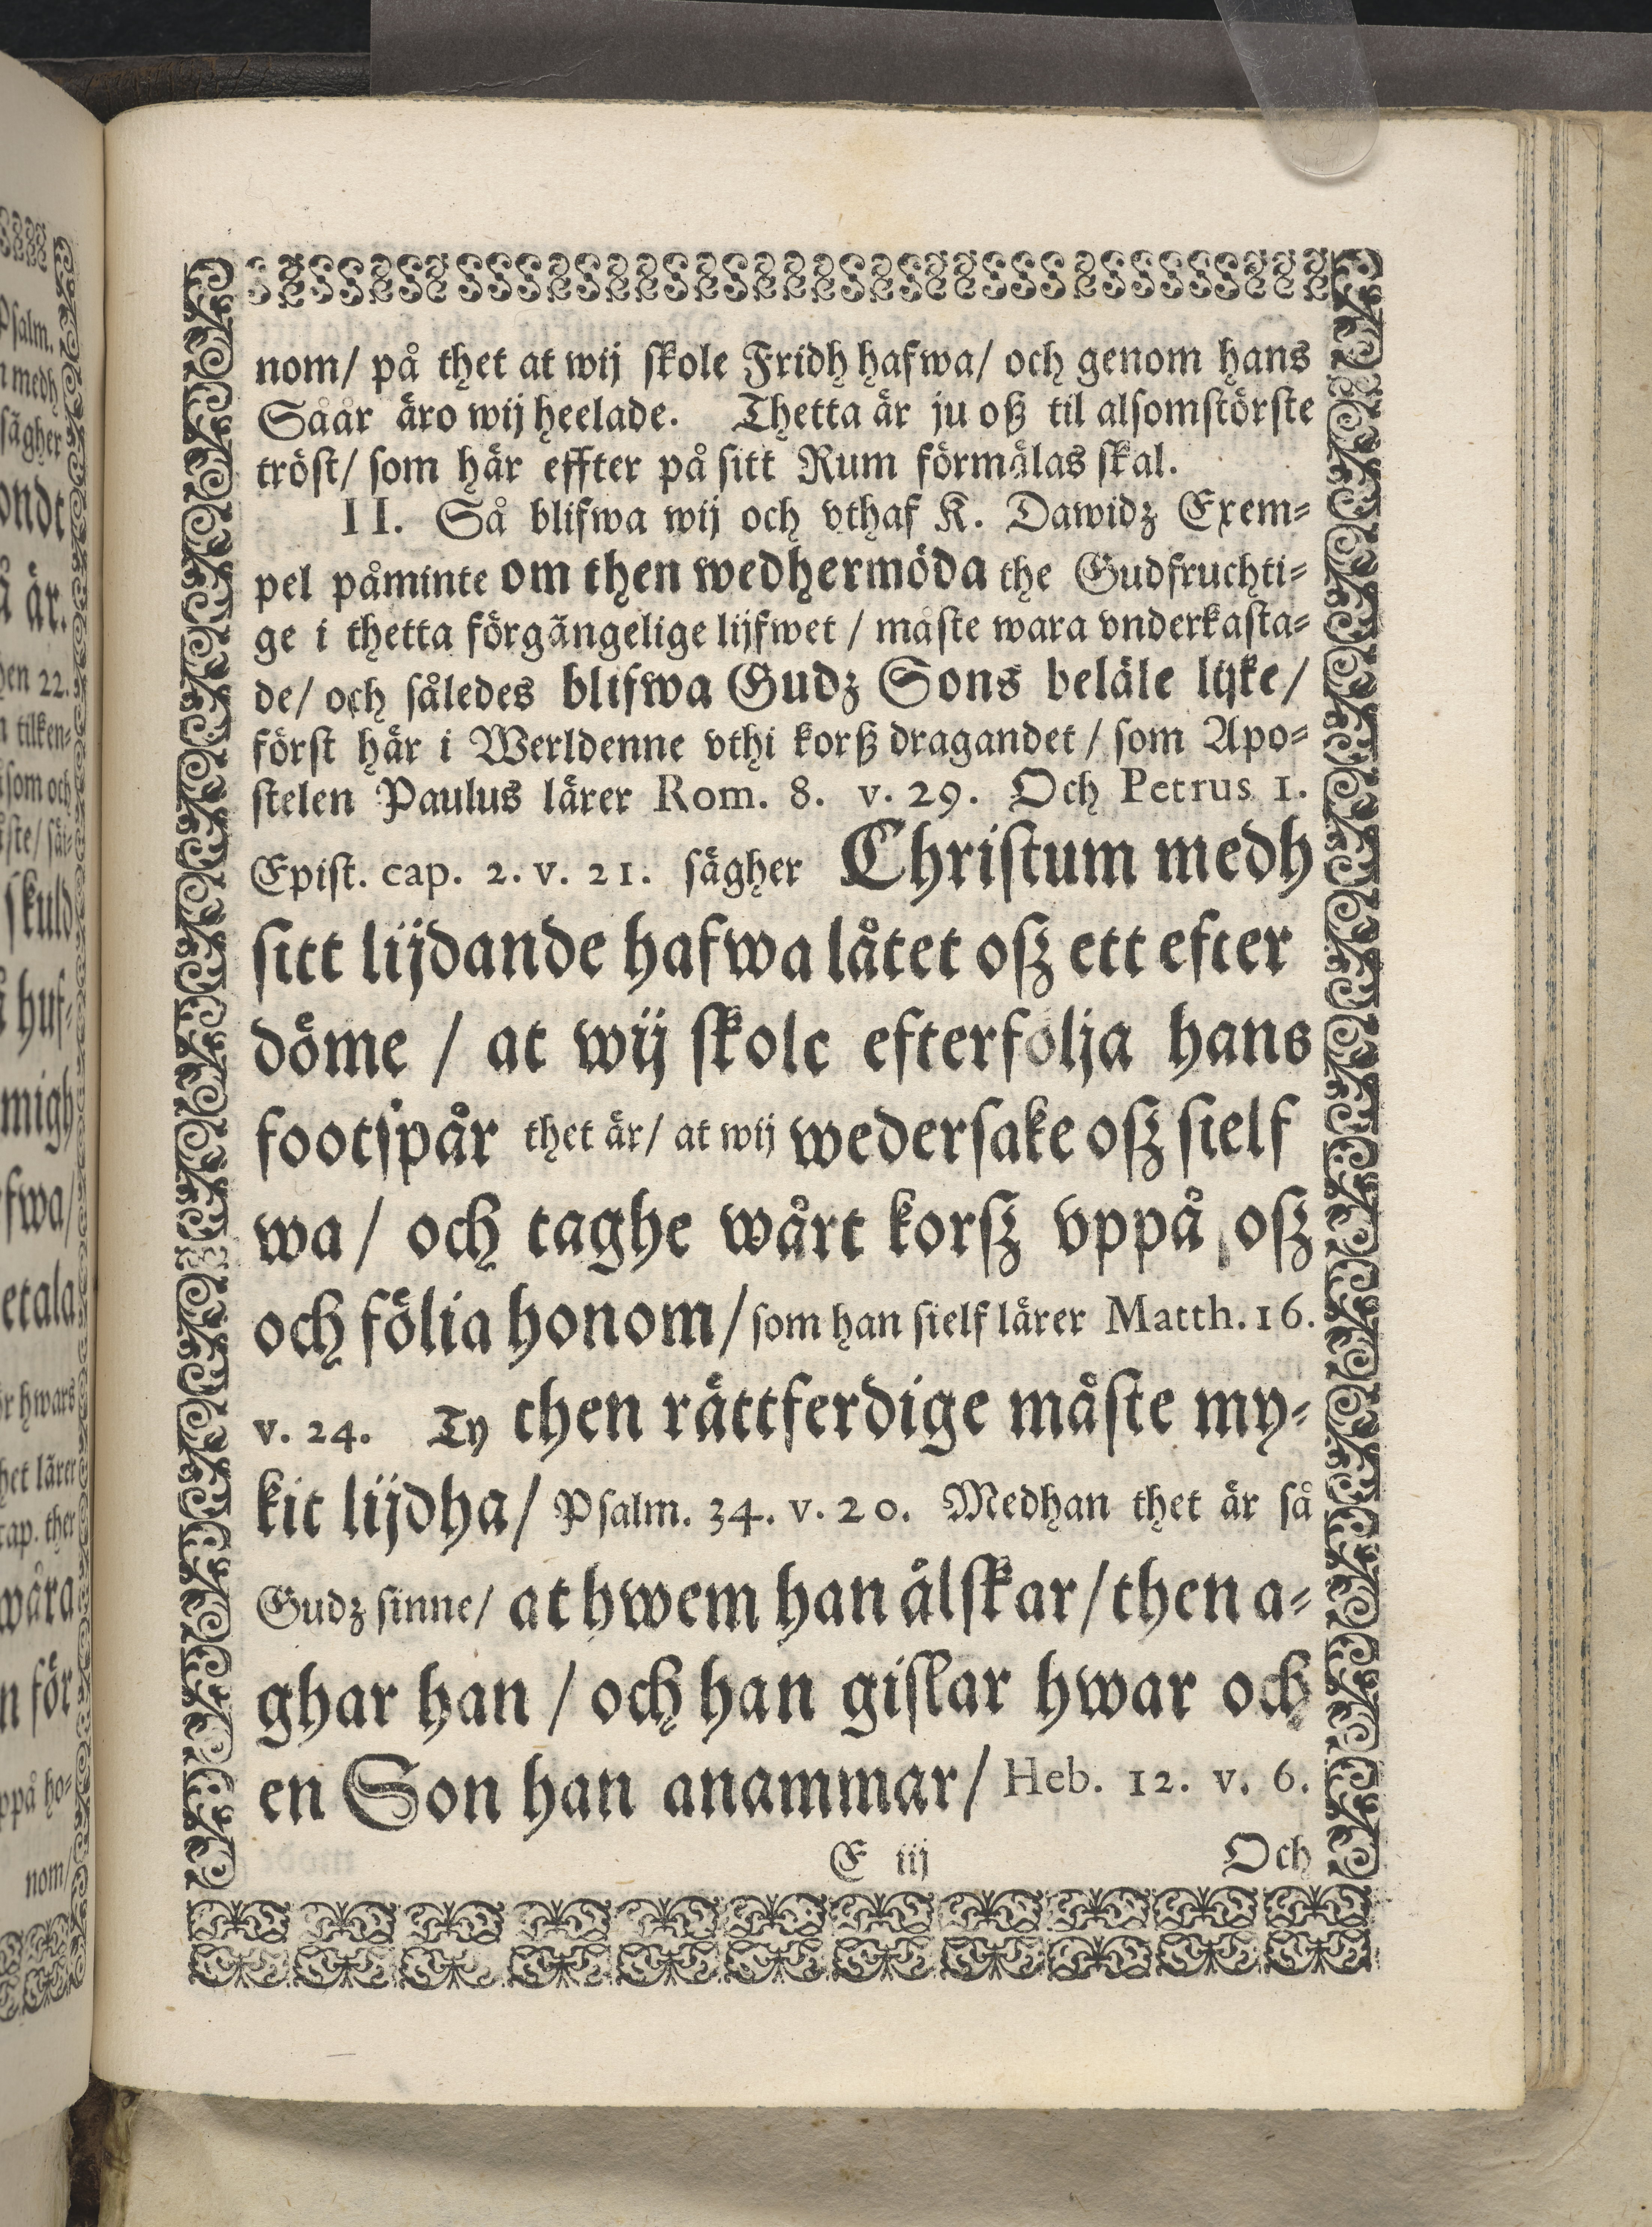 nom/ på thet at wij skole Fridh hafwa/ och genom hans
Såår äro wij heelade. Thetta är ju oß til alsomstörste
tröst/ som här effter på sitt Rum förmälas skal.
II. Så blifwa wij och vthaf K. Dawidz Exem-
pel påminte om then wedhermöda the Gudfruchti-
ge i thetta förgängelige lijfwet / måste wara vnderkasta-
de/ och således blifwa Gudz Sons beläle lijke/
först här i Werldenne vthi korß dragandet / som Apo-
stelen Paulus lärer Rom. 8. v. 29. Och Petrus 1.
Epist. cap. 2. v. 21. sägher Christum medh
sitt lijdande hafwa låtet oß ett efter
döme / at wij skole efterfolja hans
footspår thet är/ at wij wedersake oß sielf
wa / och taghe wårt korß vppå oß
och fölia honom/ som han sielf lärer Matth. 16.
v. 24. Ty then rättferdige måste my-
kit lijdha/ Psalm. 34. v. 20. Medhan thet är så
Gudz sinne/ at hwem han älskar/ then a-
ghar han / och han gislar hwar och
en Son han anammar/ Heb. 12. v. 6.
E iij Och
Psalm.
medh
sägher
ondt
är.
22.
tilken-
som och
skuld
huf-
migh
fwa/
etala
hwars
lärer
cap. ther
wåra
för
ppå ho-
nom/